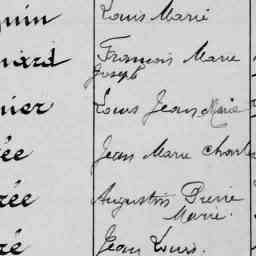 quin Louis Marie
nard François Marie
Joseph
nier Louis Jean Marie
ée Jean Marie Charles
rée Augustin Pierre
Marie.
ré Jean Louis.